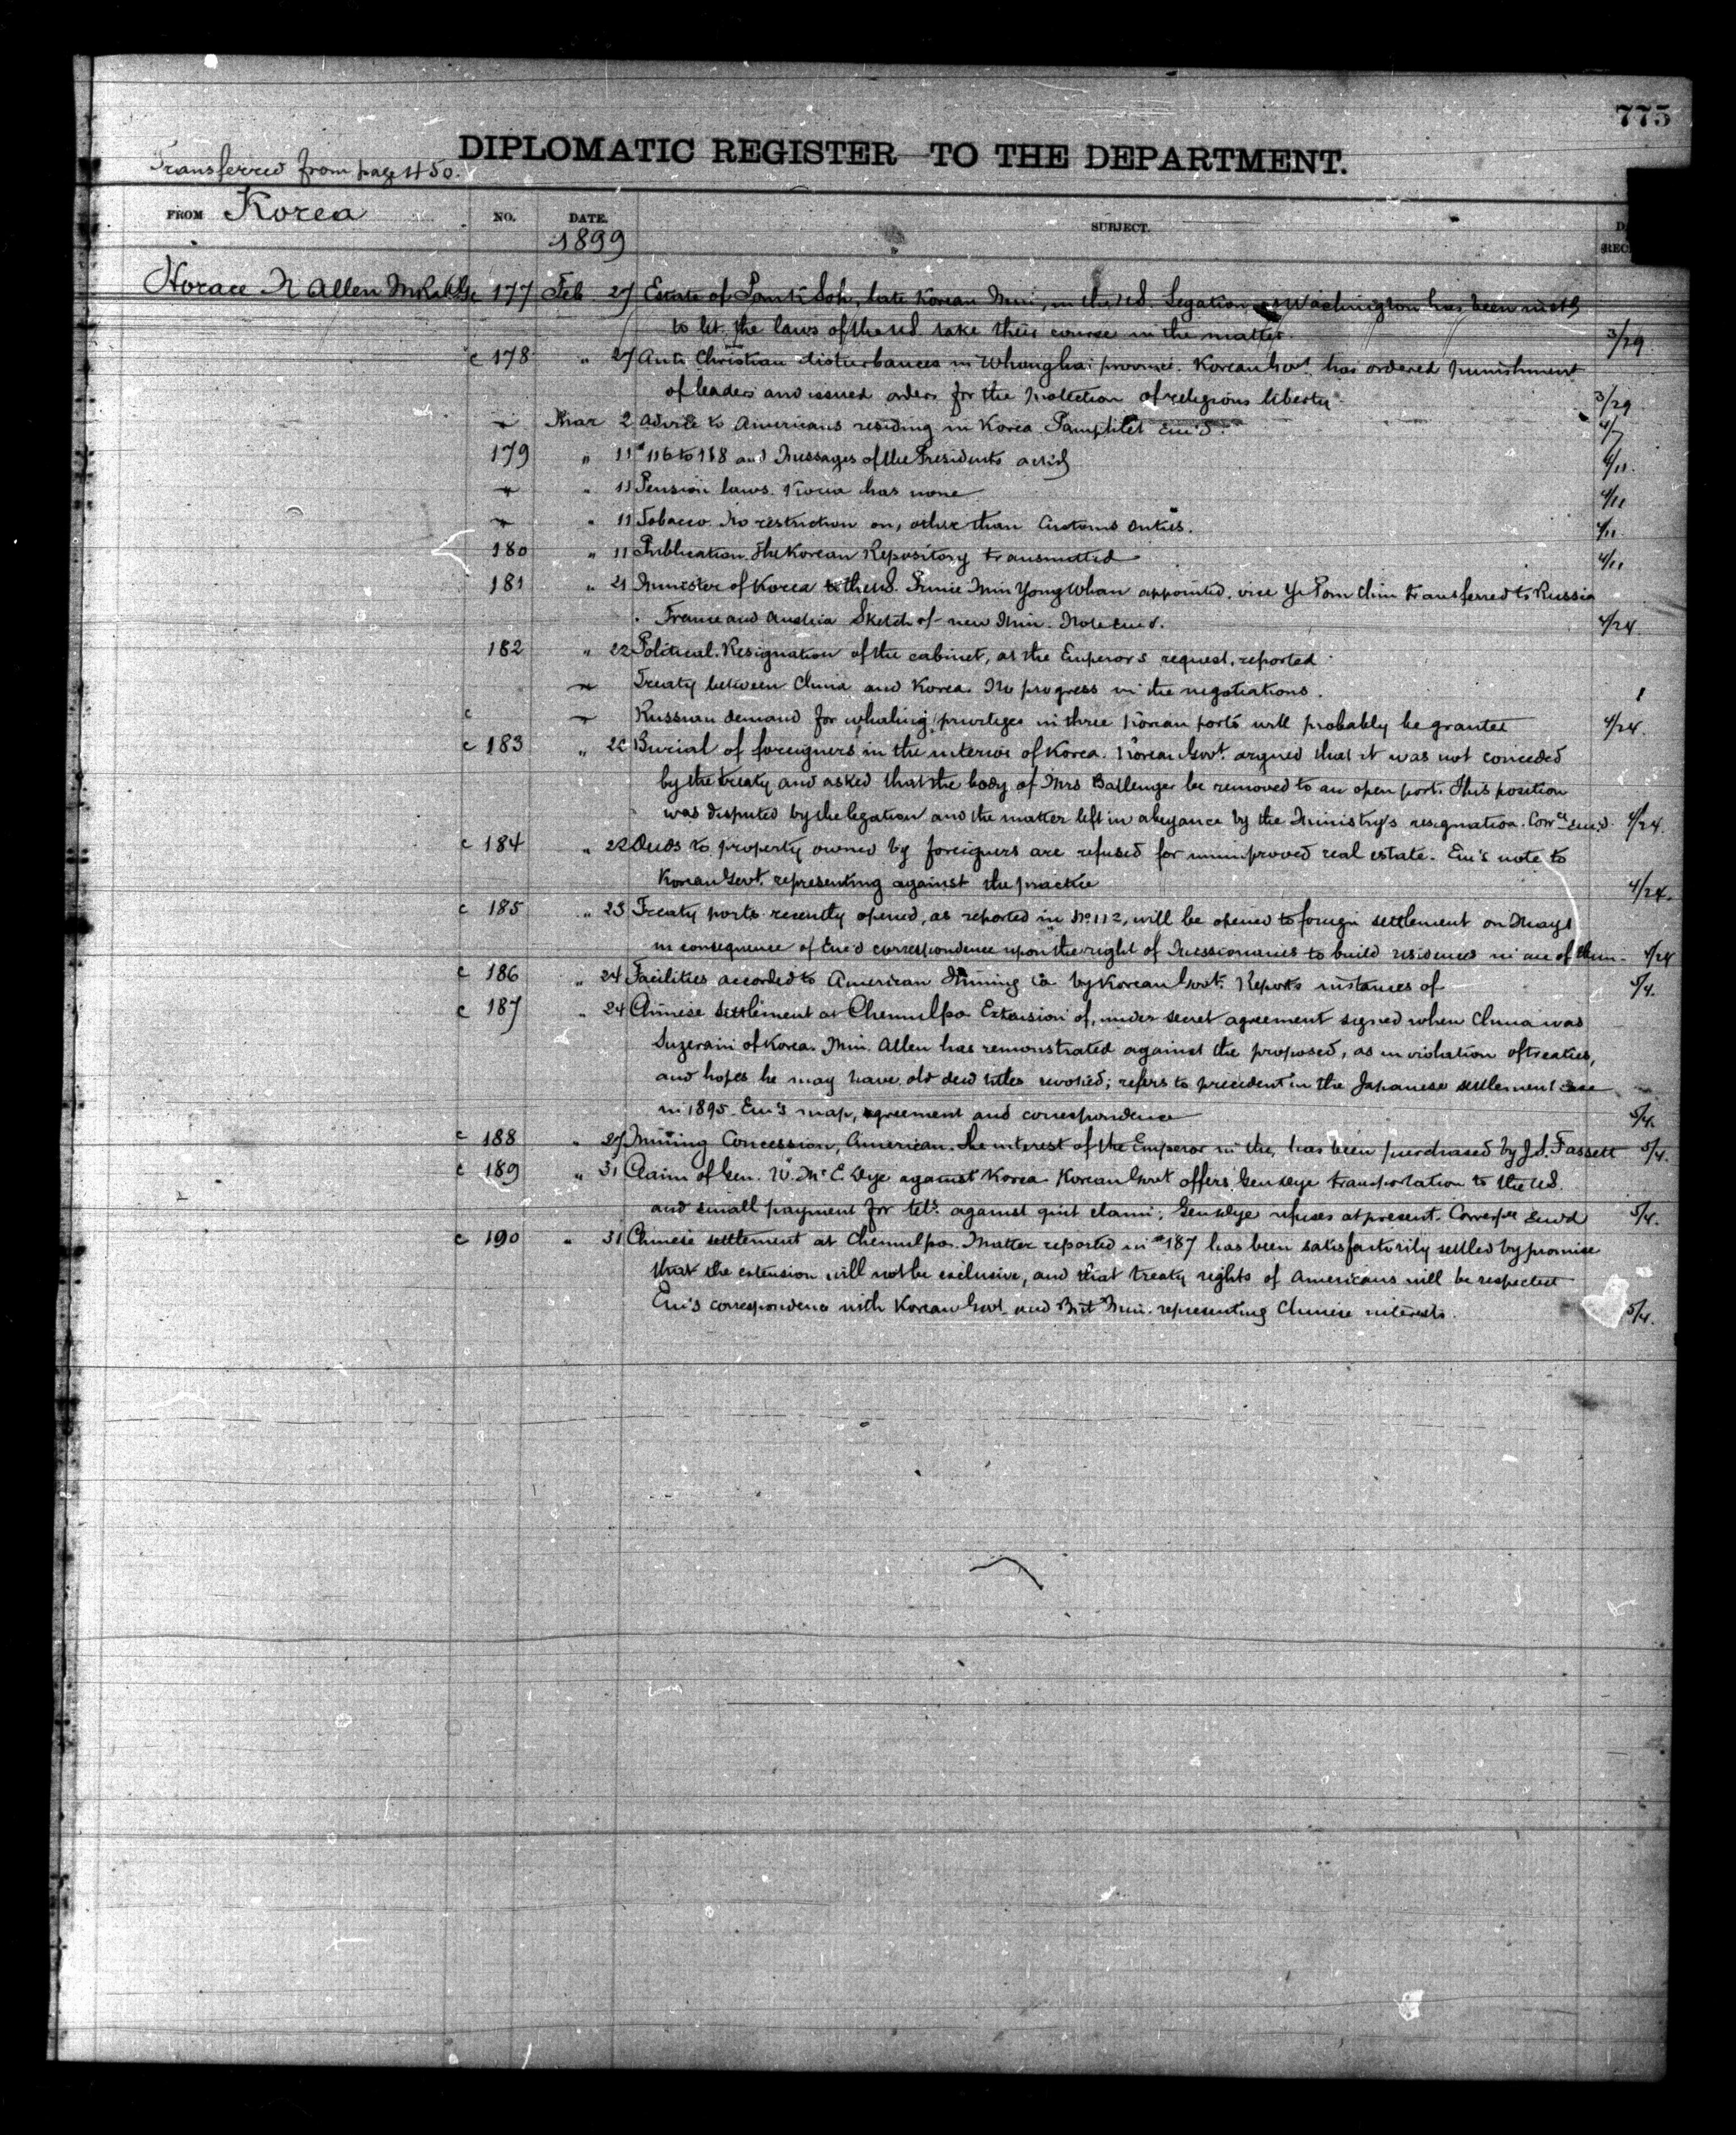 775
DIPLOMATIC REGISTER TO THE DEPARTMENT.
Transferred from page 450.
FROM Korea NO. DATE. SUBJECT. REC
1899
Horace N Allen 177 Feb 27 Estate of Soh, late Korean Min, in the U.S. Legation Washington has been
to let the laws of the U.S. take their course in the matter. 3/29
c 178 " 27 Anti Christian disturbances in Whanghai province. Korean Govt. has ordered punishment
of leaders and issued orders for the protection of religious liberty. 3/29
Mar 2 Advice to Americans residing in Korea. Pamphlet Enc's. 4/7
179 " 11 # 116 to 188 and Messages of the Presidents 4/11.
" 11 Pension laws. Korea has none 4/11
" 11 Tobacco. No restriction on, other than Customs duties. 4/11.
180 " 11 Publication. The Korean Repository transmitted 4/11
181 " 21 Minister of Korea to the U.S. Prince Min Yong Whan appointed, vice Ye Pom Chin transferred to Russia
France and Austria Sketch of new Min. Note enc'd. 4/24
182 " 22 Political. Resignation of the cabinet, at the Emperor's request, reported
Treaty between China and Korea. No progress in the negotiations.
c Russian demand for whaling privileges in three Korean ports will probably be granted 4/24.
c 183 " 22 Burial of foreigners in the interior of Korea. Korean Govt. argued that it was not conceded
by the treaty and asked that the body of Mrs Ballenger be removed to an open port. This position
was disputed by the legation and the matter left in abeyance by the Ministry's resignation. Enc'd. 4/24.
c 184 " 22 Deeds to property owned by foreigners are refused for unimproved real estate. Enc's note to
Korean Govt. representing against the practice 4/24.
c 185 " 23 Treaty ports recently opened, as reported in No. 112, will be opened to foreign settlement on May 1
in consequence of Enc'd correspondence upon the right of Missionaries to build residences in one of them. 4/24
c 186 " 24 Facilities accorded to American Mining Co by Korean Govt. Reports instances of 5/4.
c 187 " 24 Chinese settlement at Chemulpo Extension of, under secret agreement signed when China was
Suzerain of Korea. Min. Allen has remonstrated against the proposed, as in violation of treaties,
and hopes he may have old deed titles revoked; refers to precedent in the Japanese settlement case
in 1895. Enc's map, agreement and correspondence 5/4.
c 188 " 27 Mining Concession, American. The interest of the Emperor in the, has been purchased by J.S. Fassett 5/4.
c 189 " 31 Claim of Gen. W. McE. Dye against Korea Korean Govt offers Gen Dye transportation to the U.S.
and small payment for against quit claim; Gen Dye refuses at present. Enc'd 5/4.
c 190 " 31 Chinese settlement at Chemulpo. Matter reported in #187 has been satisfactorily settled by promise
that the extension will not be exclusive, and that treaty rights of Americans will be respected
Enc's correspondence with Korean Govt. and Brit Min. representing Chinese interests. 5/4.